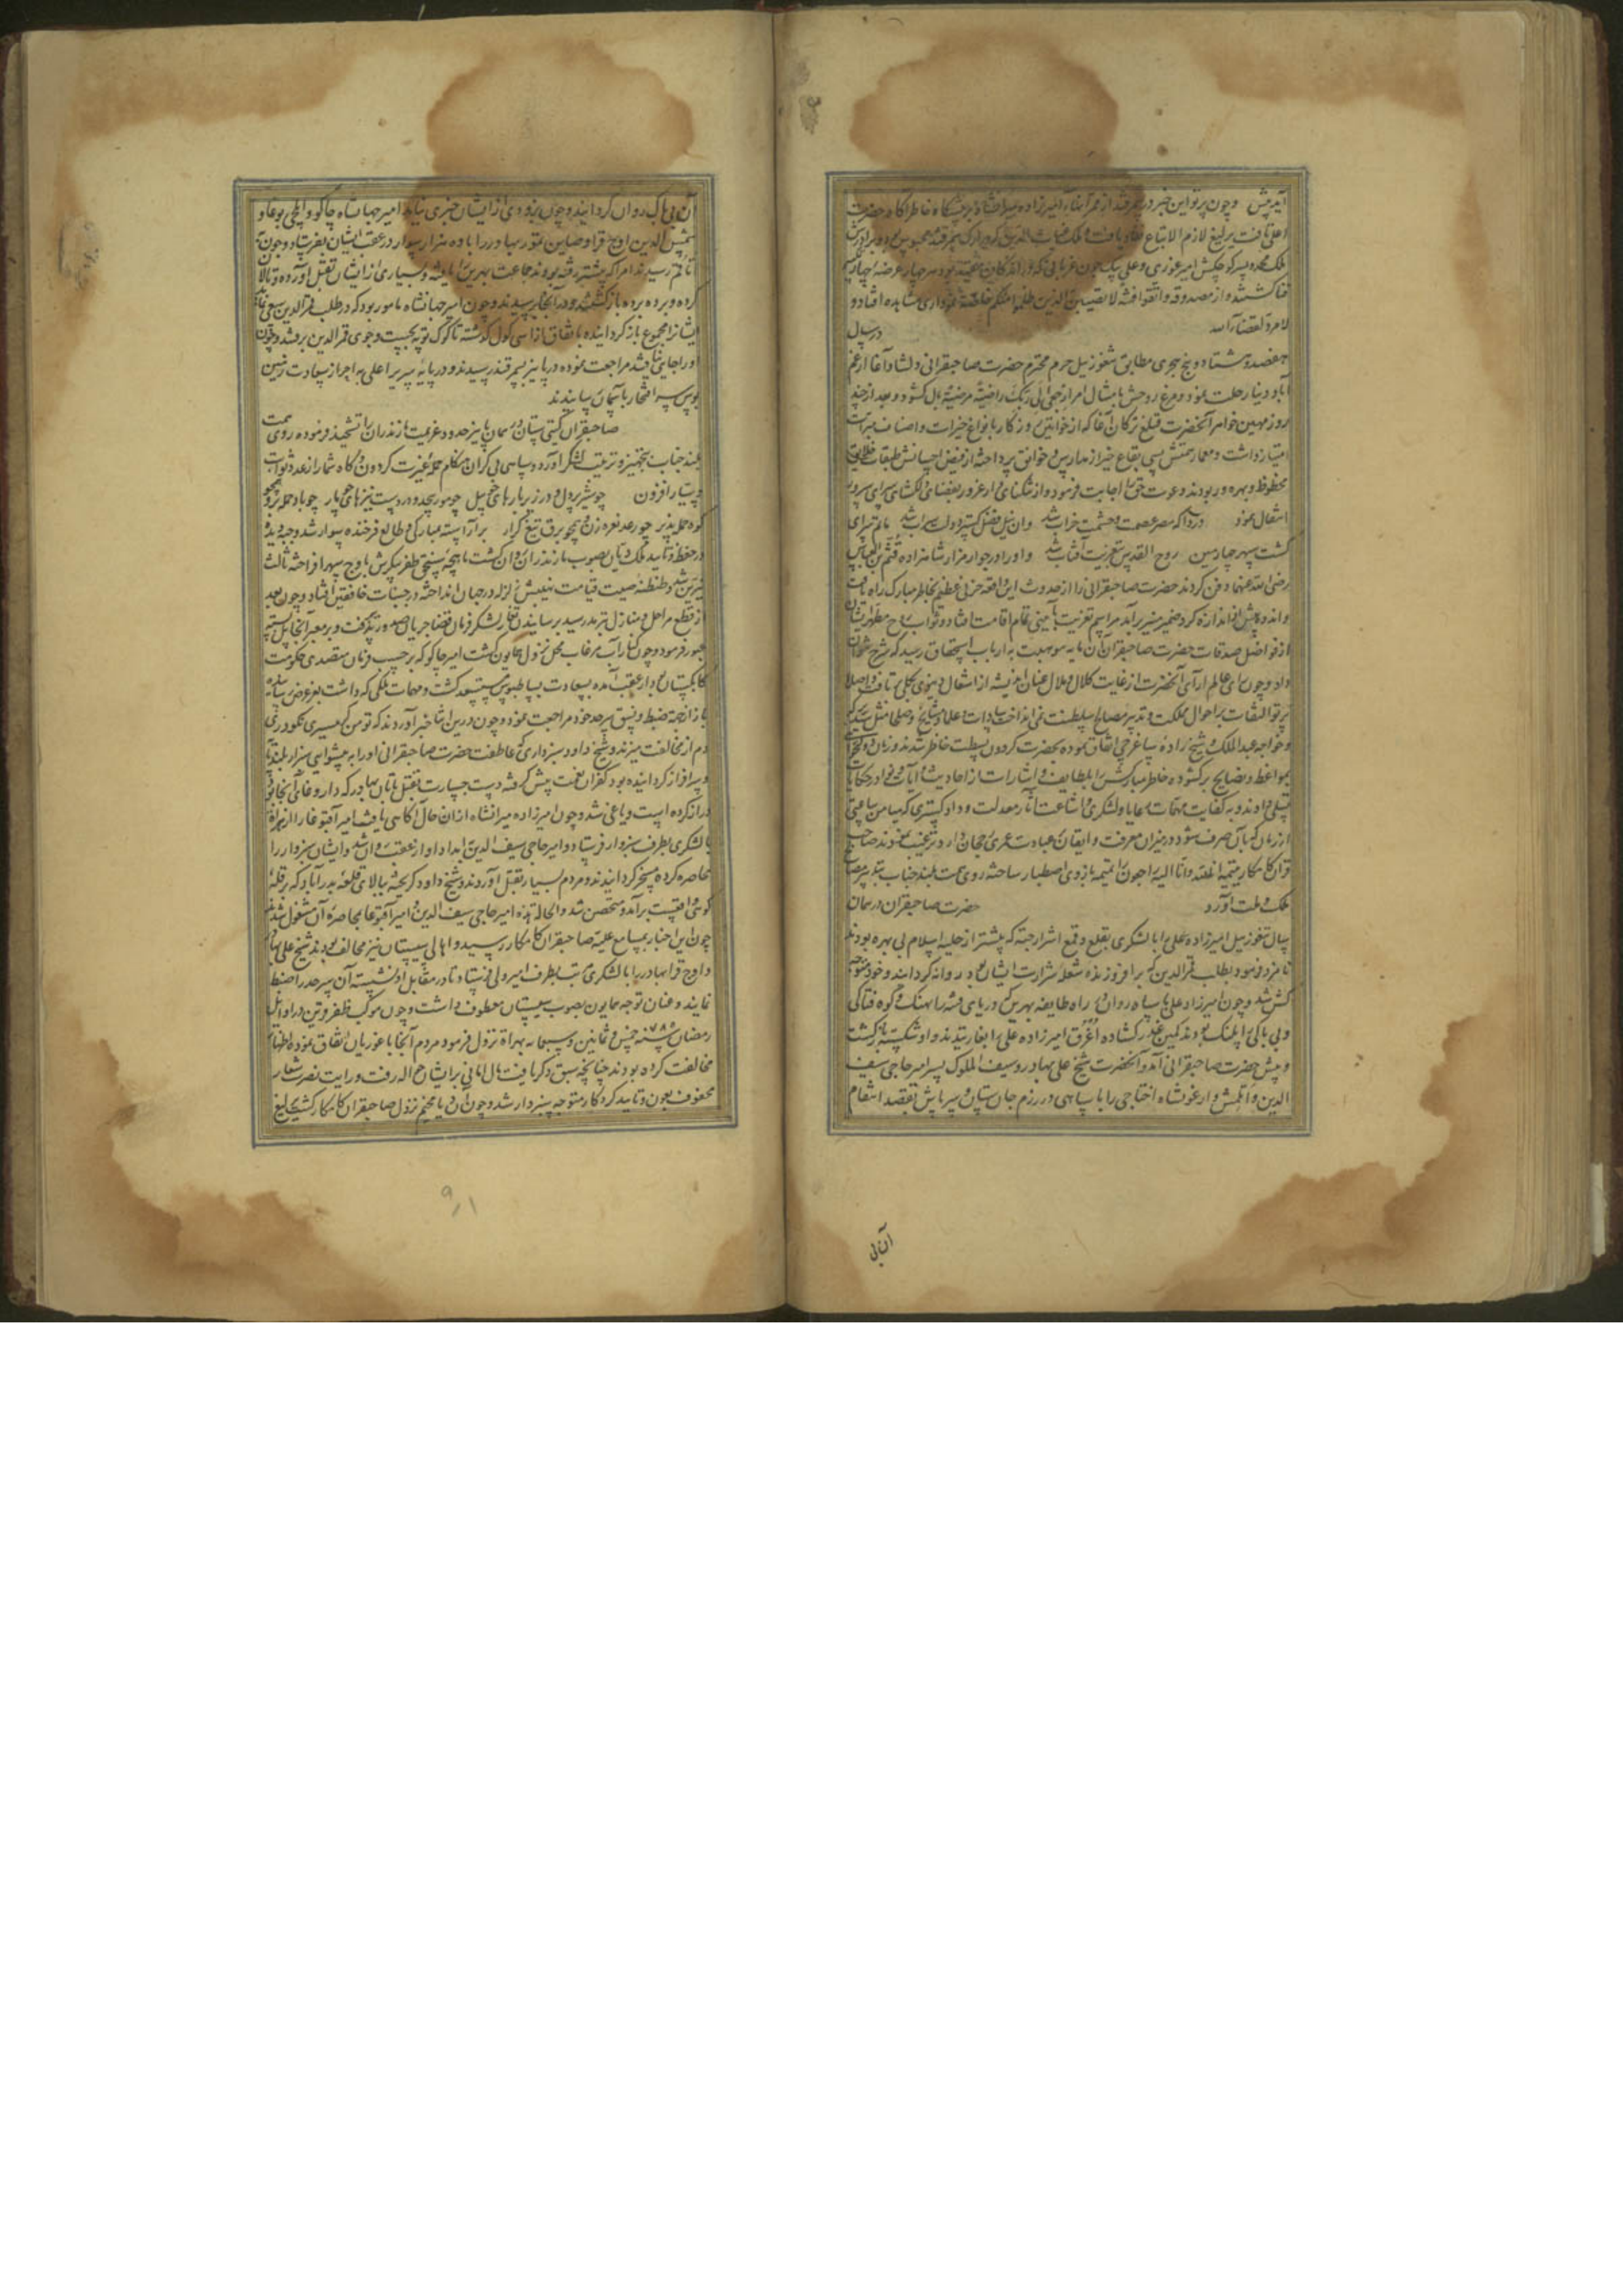 آید پیش وچون پرتو این خبر در سمرقند از ممر انهاء امیرزاده میرانشاه بر پیشگاه خاطر آگاه حضرت
اعلی تافت یرلیغ لازم الاتباع نفاذ یافت و ملک غیاث الدین که در ارک سمرقند محبوس بود و برادرش
ملک محمد و پسر کوچکش امیر غوری و علی بیک جون غربانی که در اندکان مقید بود هر چهار عرضه
فنا گشتند و از مصدوقه واتقوا فتنة لا تصیبن الذین ظلموا منکم خاصة نموداری مشاهده افتاد و
لا مرد لقضاء الله در سال
هفصد و هشتاد و پنج هجری مطابق تنغوز ییل حرم محترم حضرت صاحبقرانی دلشاد آغا از غم
آباد دنیا رحلت نمود و مرغ روحش بامتثال امر ارجعی الی ربک راضیة مرضیة بال گشود و بعد از چند
روز مهین خواهر آنحضرت قتلغ ترکان آغا که از خواتین روزگار بانواع خیرات و اصناف مبرات
امتیاز داشت و معمار همتش بسی بقاع خیر از مدارس و خوانق پرداخته از فیض احسانش طبقات خلایق
محظوظ و بهره ور بودند دعوت حق را اجابت فرمود و از تنگنای دار غرور بفضای دلگشای سرای سرور
انتقال نمود دردا که مصر عصمت و حشمت خراب شد وان نیل فضل گستر دولت سراب شد ماتم سرای
گشت سپهر چهارمین روح القدس بتعزیت آفتاب شد و او را در جوار مزار شاهزاده قثم بن العباس
رضی الله عنهما دفن کردند حضرت صاحبقرانی را از حدوث این واقعه حزنی عظیم بخاطر مبارک راه یافت
و اندوه بیش از اندازه گرد ضمیر منیر برآمد مراسم تعزیت بآیینی تمام اقامت افتاد و ثواب
از فواضل صدقات حضرت صاحبقران آن مایه موهبت به ارباب استحقاق رسید که شرح
داد و چون رای عالم آرای آنحضرت از غایت کلال و ملال عنان اندیشه از اشغال دنیوی بکلی تافت و اصلا
پرتو التفات بر احوال مملکت و تدبیر مصالح سلطنت نمی انداخت سادات و علما و مشایخ و صلحا مثل
وخواجه عبدالملک و شیخ زاده ساغرجی اتفاق نموده بحضرت گردون بسطت حاضر شدند و زبان
بمواعظ و نصایح برگشوده خاطر مبارکش را بلطایف اشارات از احادیث و آیات و نوادر حکایات
تسلی دادند و به کفایت مهمات رعایا و لشکری و اشاعت آثار معدلت و داد گستری که میامن ساعتی
از زمان که بآن صرف شود در میزان معرفت و ایقان عبادت عمری رجحان دارد ترغیب نمودند صاحب
قران کامکار تمیمه انا لله وانا الیه راجعون را تمیمه بازوی اصطبار ساخته روی همت بلند جناب بتدبیر مصالح
ملک و ملت آورد حضرت صاحبقران در همان
سال تنغوز ییل امیرزاده علی را با لشکری بقلع و قمع اشرار جته که پیشتر از حلیه اسلام بی بهره بودند
نامزد فرمود بطلب قمرالدین که بر افروزنده شعله شرارت ایشان بود روانه گردانید و خود متوجه
کش شد وچون امیرزاد علی با سپاه روان شد در راه طایفه بهرین که دریای فتنه را نهنگ و کوه فتاکی
وبی باکی را پلنگ بودند کمین غدر گشاده اغرق امیرزاده علی را بغارتیدند و او شکسته بازگشت
و پیش حضرت صاحبقرانی آمد و آنحضرت شیخ علی بهادر و سیف الملوک پسر امیر حاجی سیف
الدین و اتلمش و ارغونشاه اختاجی را با سپاهی در رزم جان ستان و سر پاش بقصد انتقام
آن بی
آن بی باک روان گردانید وچون بزودی از ایشان خبری نیامد امیر جهانشاه جاکو و ایلچی بوغا و
شمس الدین اوج قرا و صاین تمور بهادر را با ده هزار سوار در عقب ایشان بفرستاد وچون
تا اتقم رسیدند امرا که پیشتر رفته بودند جماعت بهرین را یافته و بسیاری از ایشان بقتل آورده و تالان
کرده و برده برده باز گشتند و در آنجا برسیدند وچون امیر جهانشاه مامور بود که در طلب قمرالدین سعی نماید
ایشانرا مجموع باز گردانیده باتفاق از اسی کول گذشته تا کوک توپه بجست و جوی قمرالدین برفتند وچون
او را جایی نیافتند مراجعت نموده در پاییز بسمرقند رسیدند و در پایه سریر اعلی به احراز سعادت زمین
بوس سر افتخار بآسمان سانیدند
صاحبقران گیتی ستان در همان پاییز حدود عزیمت مازندران را تشحیذ فرموده روی همت
بلند جناب بتجهیز و ترتیب لشکر آورد و سپاهی بی کران هنگام حمله غیرت گردون و گاه شمار از عدد ثوابت
و سیار افزون چو شیر پر دل و در زیر بارهای چو پیل چو مور بیحد و در دست نیزهای چو مار چو باد حمله بر و همچو
کوه حمله پذیر چو رعد نعره زن و همچو برق تیغ گزار بر آراسته مبارکی و طالع فرخنده سوار شد و
در حفظ و تایید ملک دیان بصوب مازندران روان گشت ماهچه سنجق ظفر پیکرش باوج سپهر افراخته ثالث
نیرین شد و طنطنه صیت قیامت نهیبش زلزله در جهان انداخته در جنبات خافقین افتاد وچون بعد
از قطع مراحل و منازل بترمد رسید بر سایندن تغار لشکر فرمان قضا جریان صدور پذیرفت و بر معبر آنجا پل بسته
عبور فرمود وچون کنار آب مرغاب محل نزول همایون گشت امیر جاکو که بر حسب فرمان متصدی حکومت
کابلستان بود از عقب آمده بسعادت بساط بوس مستسعد گشت و مهمات ملکی که داشت بعز عرض رسانیده
باز از جهة ضبط و نسق سرحد خود مراجعت نمود وچون درین اثنا خبر آوردند که تومن گرمسیری نکودری
دم از مخالفت میزند و شیخ داود سبزواری که عاطفت حضرت صاحبقرانی او را به پیشوایی سبزوار بلند نام
و سرافراز گردانیده بود کفران نعمت پیش گرفته دست جسارت بقتل تابان بهادر که داروغای آنجا بود
دراز کرده است و یاغی شد وچون امیرزاده میرانشاه از آن حال آگاهی یافت امیر آقبوغا را از هراة
با لشکری بطرف سبزوار فرستاد و امیر حاجی سیف الدین بامداد او از عقب روان شد و ایشان سبزوار را
محاصره کرده مسخر گردانیدند و مردم بسیار بقتل آوردند و شیخ داود گریخته ببالای قلعه بدرآباد که بر قله
کوهی واقعست برآمد و متحصن شد و الحاله هذه امیر حاجی سیف الدین و امیر آقبوغا بمحاصره آن مشغول شدند
چون این اخبار بمسامع علیه صاحبقران کامکار رسید و اهالی سیستان نیز مخالف بودند شیخ علی بهادر
و اوج قرا بهادر را با لشکری بطرف امیر ولی فرستاد تا در مقابل او نشسته آن سرحد را ضبط
نمایند و عنان توجه همایون بصوب سیستان معطوف داشت وچون موکب ظفر قرین در اوایل
رمضان سنه ۷۸۵ خمس و ثمانین و سبعمایه بهراة نزول فرمود مردم آنجا با غوریان اتفاق نموده اظهار
مخالفت کرده بودند چنانچه سبق ذکر یافت مال امانی بر ایشان حواله رفت و رایت نصرت شعار
محفوف بعون و تایید کردگار متوجه سبزوار شد وچون آن دیار مخیم نزول صاحبقران کامکار گشت